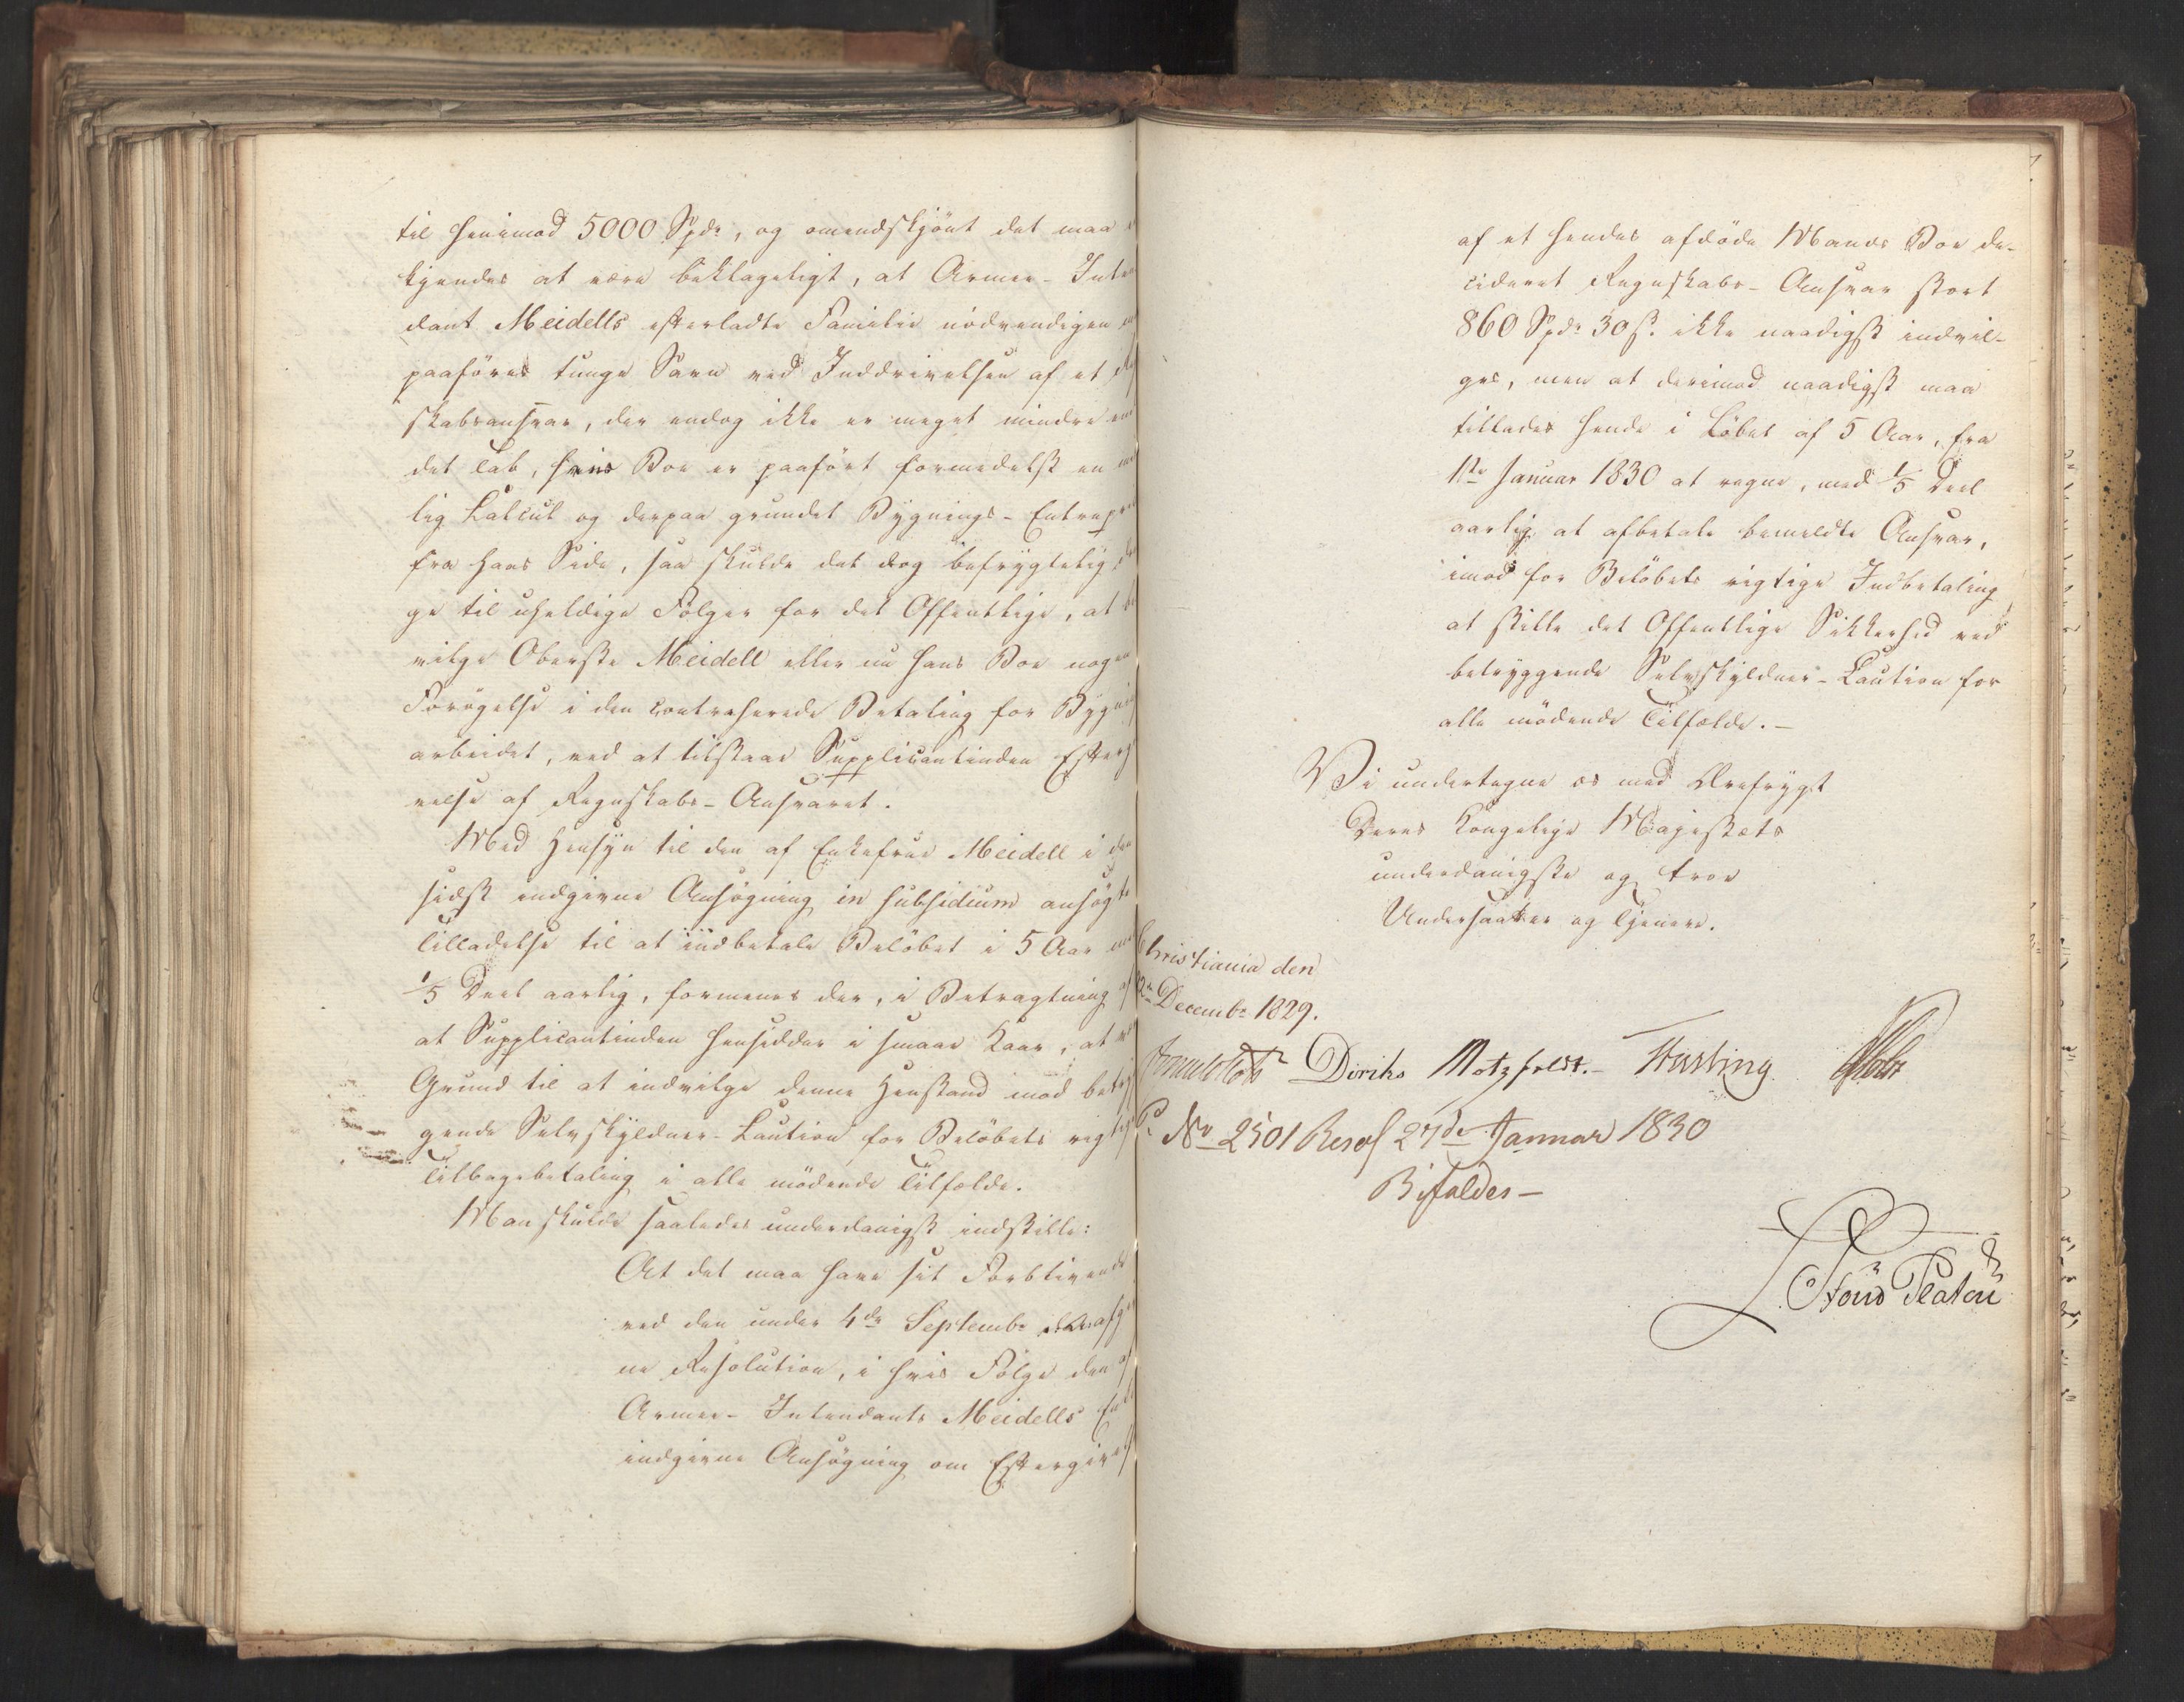 til henimod 5000 Spdr, og omendskjönt det maa
kjendes at være beklageligt, at Armee-Inten
dant Meidells efterladte Familie nödvendigen
paaföres tunge Savn ved Inddrivelsen af et
skabsansvar, der endog ikke er meget mindre end
det Tab, hans Boe er paaført formedelst en
lig Calcul og derpaa grundet Bygnings-Entrepr
fra hans Side, saa skulde det dog befrygtelig
ge til uheldige Følger for det Offentlige, at be
vilge Oberste Meidell eller nu hans Boe nogen
Forögelse i den contraherede Betaling for Bygnings
arbeidet, ved at tilstaae Supplicantinden Eftergi
velse af Regnskabs-Ansvaret.
Med Hensyn til den af Enkefrue Meidell i den
sidst indgivne Ansögning in subsidium ansögte
Tilladelse til at indbetale Belöbet i 5 Aar med
1/5 Deel aarlig, formenes der, i Betragtning af
at Supplicantinden hensidder i smaae Kaar, at være
Grund til at indvilge denne Henstand mod betryg
gende Selvskyldner-Caution for Belöbets rigtige
Tilbagebetaling i alle mödende Tilfælde.
Man skulde saaledes underdanigst indstille:
At det maa have sit Forblivende
ved den under 4de Septembr afgiv
ne Resolution, i hvis Fölge den af
Armee-Intendants Meidells Enke
indgivne Ansögning om Eftergivelse
af et hendes afdöde Mands Boe de-
cideret Regnskabs-Ansvar stort
860 Spdr 30 s. ikke naadigst indvil-
ges, men at derimod naadigst maa
tillades hende i Löbet af 5 Aar, fra
1ste Januar 1830 at regne, med 1/5 Deel
aarlig at afbetale bemeldte Ansvar,
imod for Belöbets rigtige Indbetaling
at stille det Offentlige Sikkerhed ved
betryggende Selvskyldner-Caution for
alle mödende Tilfælde.-
Vi undertegne os med Ærefrygt
Deres Kongelige Majestæts
underdanigste og troe
Undersaatter og Tjenere.
Christiania den
Decembr 1829.
Diriks Motzfeldt.- Fasting Holst
No 2501 Resol 27de Januar 1830
Bifaldes-